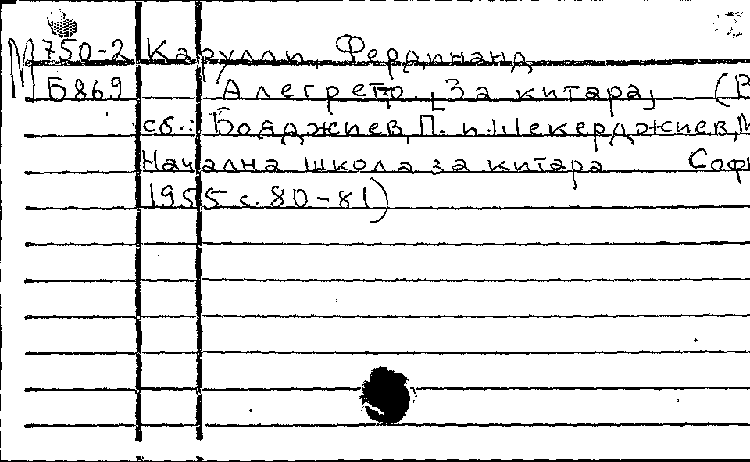 М 750-2 Карулли, Фердинанд
Б869 Алегрето [За китара] (В
сб.: Бояджиев, П. и Шекерджиев, М
Начална школа за китара Софи
1955 с. 80-81)